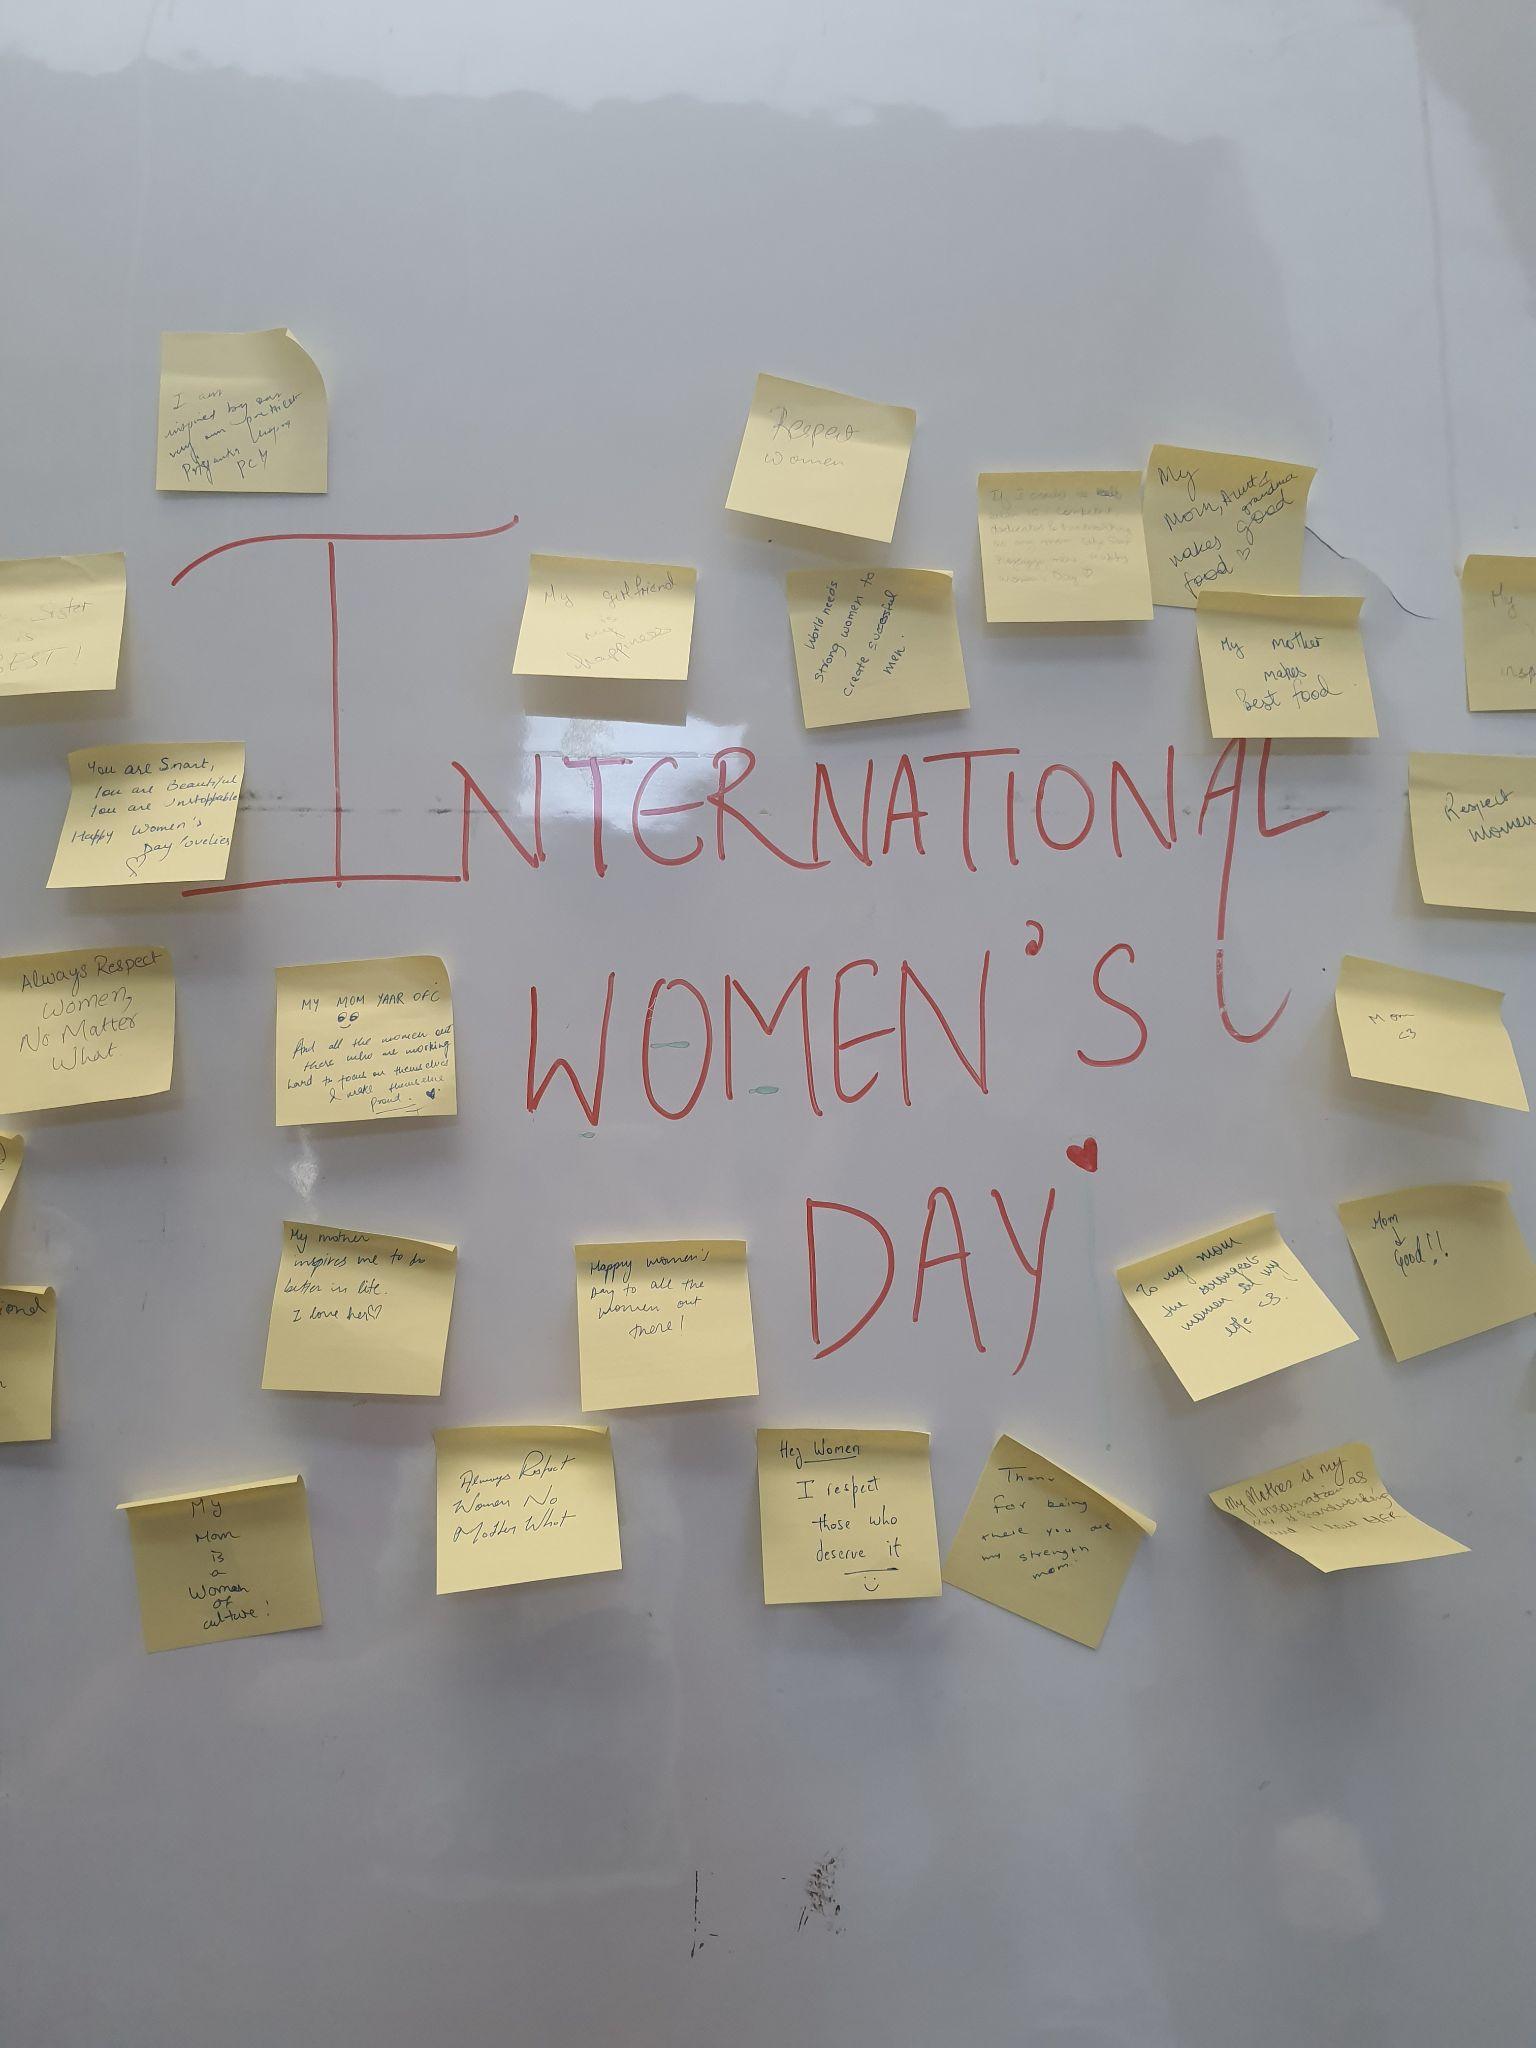 I am
inspired by our
very own
PCY
Respect
women
If I could
My
Mom, Aunt &
grandma
makes good
food
Sister
is
BEST!
My girlfriend
is
my
happiness
World needs
strong women to
create successful
men.
My mother
makes
Best food
My
insp
You are Smart,
You are Beautiful
You are Unstoppable
Happy Women's
Day lovelies
Respect
women
INTERNATIONAL
WOMEN'S
DAY
Always Respect
Women,
No Matter
What
MY MOM YAAR OFC
And all the women out
there who are working
hard to focus on themselves
& make themselve
proud.
Mom
<3
My mother
inspires me to do
better in life.
I love her
Happy women's
Day to all the
women out
there!
To my mom
the strongest
woman in my
life <3.
Mom
Good!!
ional
My
Mom
is
a
Woman
of
culture!
Always Respect
Women No
Matter What
Hey Women
I respect
those who
deserve it
for being
there you are
my strength
mom!
My Mother is my
inspiration as
is hardworking
and I love HER